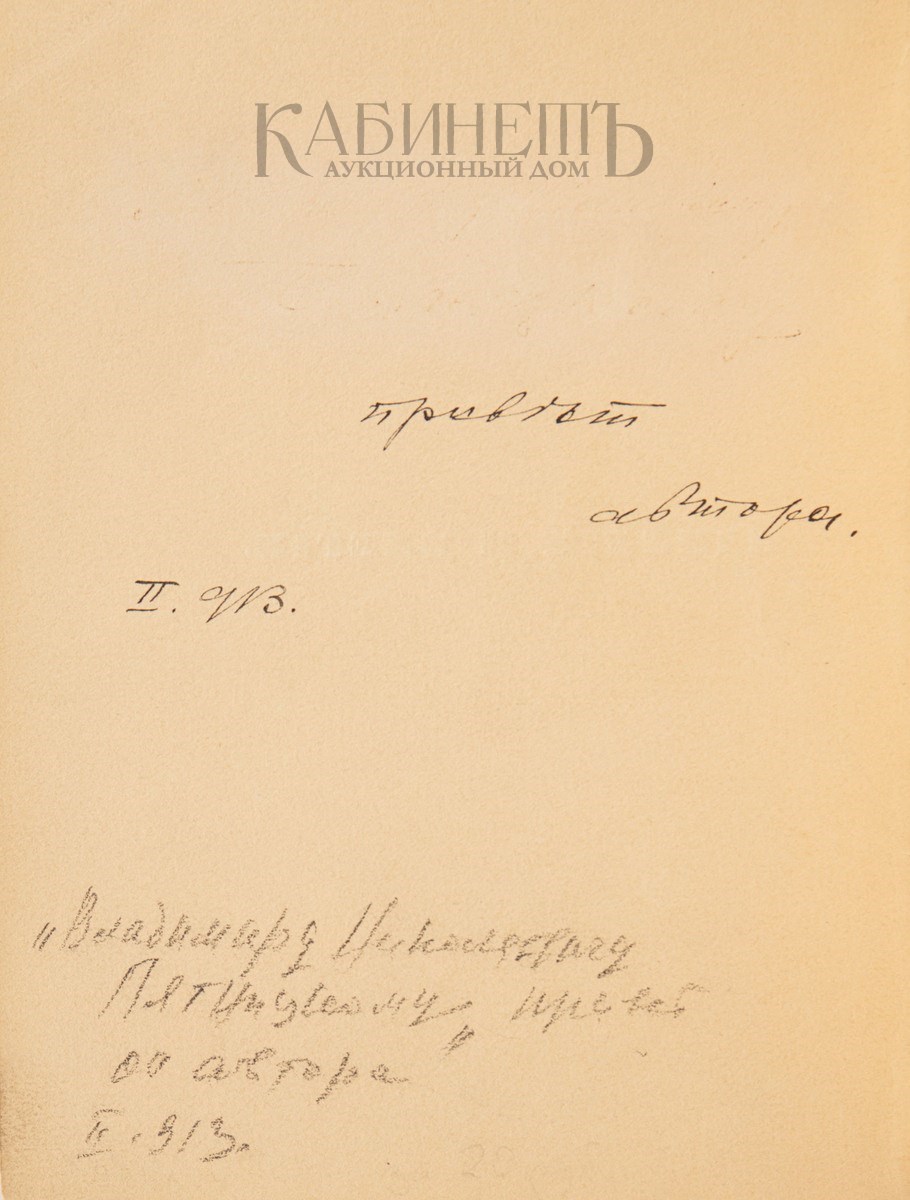 КАБИНЕТЪ
АУКЦИОННЫЙ ДОМ
привѣт
автора.
II. 913.
„Владимиру Николаевичу
Пятницкому, привет
от автора"
II. 913.